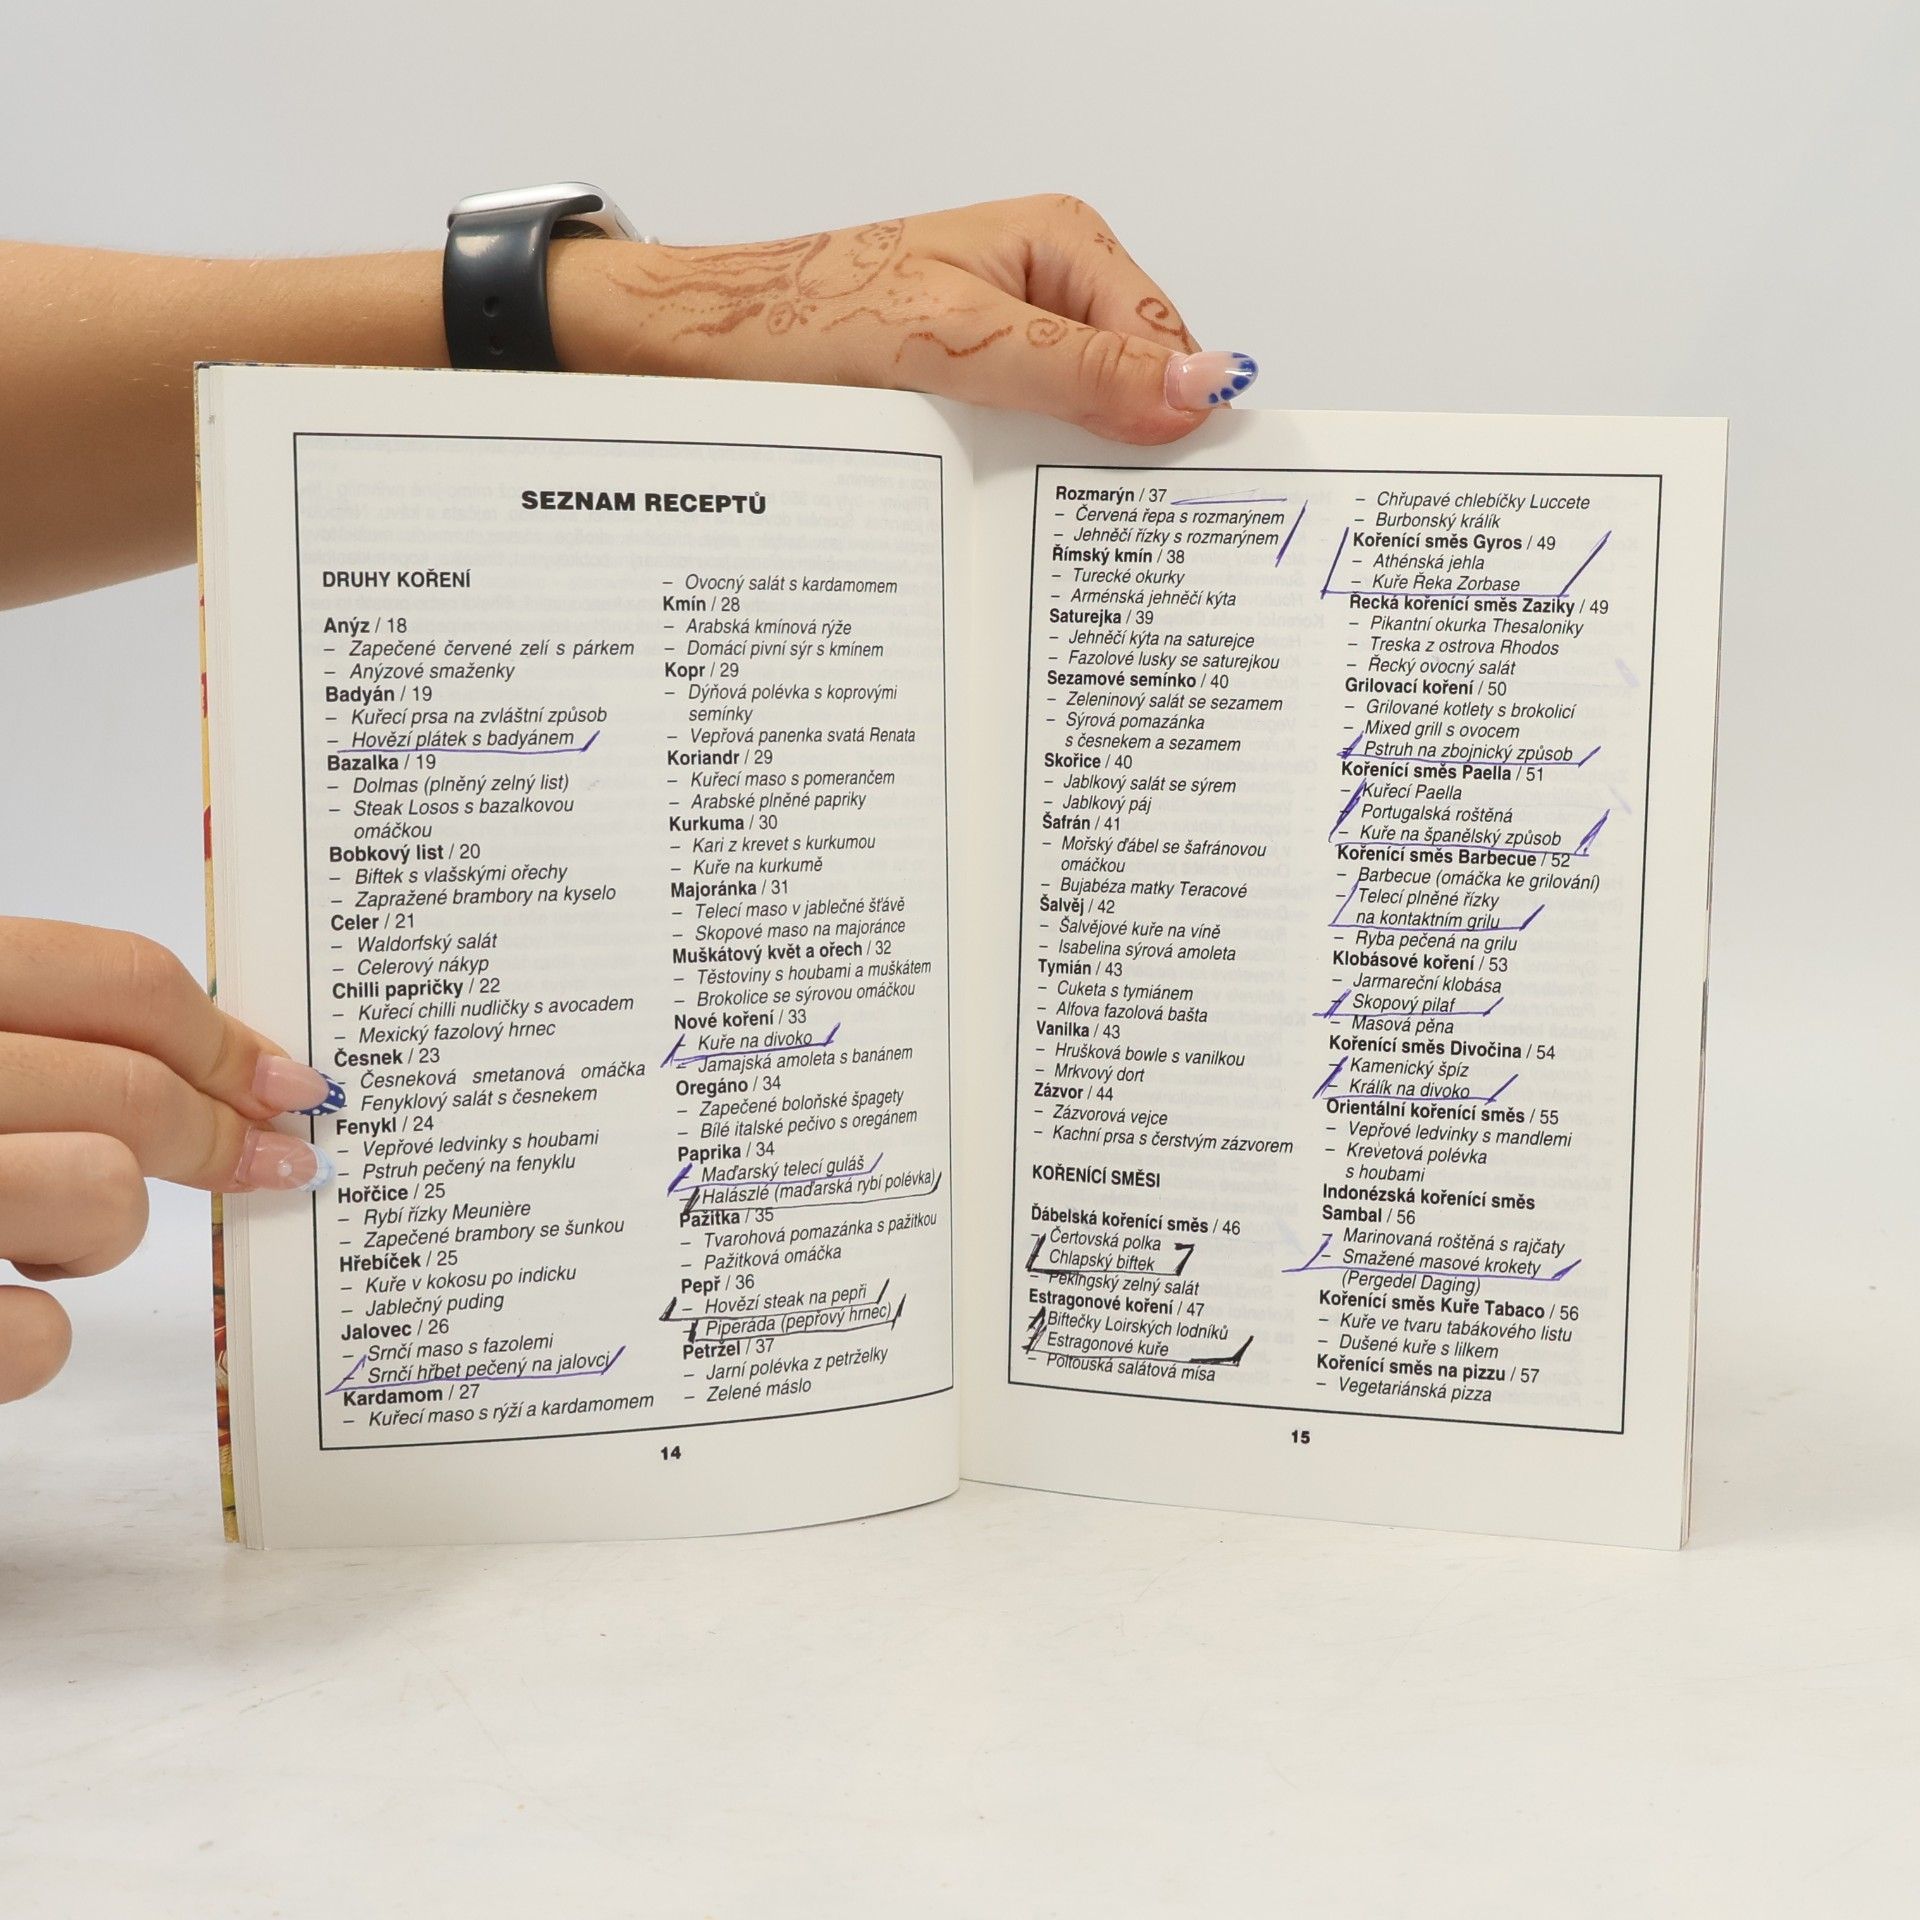 SEZNAM RECEPTŮ
DRUHY KOŘENÍ
Anýz / 18
– Zapečené červené zelí s párkem
– Anýzové smaženky
Badyán / 19
– Kuřecí prsa na zvláštní způsob
– Hovězí plátek s badyánem
Bazalka / 19
– Dolmas (plněný zelný list)
– Steak Losos s bazalkovou
omáčkou
Bobkový list / 20
– Biftek s vlašskými ořechy
– Zapražené brambory na kyselo
Celer / 21
– Waldorfský salát
– Celerový nákyp
Chilli papričky / 22
– Kuřecí chilli nudličky s avocadem
– Mexický fazolový hrnec
Česnek / 23
– Česneková smetanová omáčka
– Fenyklový salát s česnekem
Fenykl / 24
– Vepřové ledvinky s houbami
– Pstruh pečený na fenyklu
Hořčice / 25
– Rybí řízky Meunière
– Zapečené brambory se šunkou
Hřebíček / 25
– Kuře v kokosu po indicku
– Jablečný puding
Jalovec / 26
– Srnčí maso s fazolemi
– Srnčí hřbet pečený na jalovci
Kardamom / 27
– Kuřecí maso s rýží a kardamomem
– Ovocný salát s kardamomem
Kmín / 28
– Arabská kmínová rýže
– Domácí pivní sýr s kmínem
Kopr / 29
– Dýňová polévka s koprovými
semínky
– Vepřová panenka svatá Renata
Koriandr / 29
– Kuřecí maso s pomerančem
– Arabské plněné papriky
Kurkuma / 30
– Kari z krevet s kurkumou
– Kuře na kurkumě
Majoránka / 31
– Telecí maso v jablečné šťávě
– Skopové maso na majoránce
Muškátový květ a ořech / 32
– Těstoviny s houbami a muškátem
– Brokolice se sýrovou omáčkou
Nové koření / 33
– Kuře na divoko
– Jamajská amoleta s banánem
Oregáno / 34
– Zapečené boloňské špagety
– Bílé italské pečivo s oregánem
Paprika / 34
– Maďarský telecí guláš
– Halászlé (maďarská rybí polévka)
Pažitka / 35
– Tvarohová pomazánka s pažitkou
– Pažitková omáčka
Pepř / 36
– Hovězí steak na pepři
– Piperáda (pepřový hrnec)
Petržel / 37
– Jarní polévka z petrželky
– Zelené máslo
14
Rozmarýn / 37
– Červená řepa s rozmarýnem
– Jehněčí řízky s rozmarýnem
Římský kmín / 38
– Turecké okurky
– Arménská jehněčí kýta
Saturejka / 39
– Jehněčí kýta na saturejce
– Fazolové lusky se saturejkou
Sezamové semínko / 40
– Zeleninový salát se sezamem
– Sýrová pomazánka
s česnekem a sezamem
Skořice / 40
– Jablkový salát se sýrem
– Jablkový páj
Šafrán / 41
– Mořský ďábel se šafránovou
omáčkou
– Bujabéza matky Teracové
Šalvěj / 42
– Šalvějové kuře na víně
– Isabelina sýrová amoleta
Tymián / 43
– Cuketa s tymiánem
– Alfova fazolová bašta
Vanilka / 43
– Hrušková bowle s vanilkou
– Mrkvový dort
Zázvor / 44
– Zázvorová vejce
– Kachní prsa s čerstvým zázvorem
KOŘENÍCÍ SMĚSI
Ďábelská kořenící směs / 46
– Čertovská polka
– Chlapský biftek
– Pekingský zelný salát
Estragonové koření / 47
– Biftečky Loirských lodníků
– Estragonové kuře
– Poitouská salátová mísa
– Chřupavé chlebíčky Luccete
– Burbonský králík
Kořenící směs Gyros / 49
– Athénská jehla
– Kuře Řeka Zorbase
Řecká kořenící směs Zaziky / 49
– Pikantní okurka Thesaloniky
– Treska z ostrova Rhodos
– Řecký ovocný salát
Grilovací koření / 50
– Grilované kotlety s brokolicí
– Mixed grill s ovocem
– Pstruh na zbojnický způsob
Kořenící směs Paella / 51
– Kuřecí Paella
– Portugalská roštěná
– Kuře na španělský způsob
Kořenící směs Barbecue / 52
– Barbecue (omáčka ke grilování)
– Telecí plněné řízky
na kontaktním grilu
– Ryba pečená na grilu
Klobásové koření / 53
– Jarmareční klobása
– Skopový pilaf
– Masová pěna
Kořenící směs Divočina / 54
– Kamenický špíz
– Králík na divoko
Orientální kořenící směs / 55
– Vepřové ledvinky s mandlemi
– Krevetová polévka
s houbami
Indonézská kořenící směs
Sambal / 56
– Marinovaná roštěná s rajčaty
– Smažené masové krokety
(Pergedel Daging)
Kořenící směs Kuře Tabaco / 56
– Kuře ve tvaru tabákového listu
– Dušené kuře s lilkem
Kořenící směs na pizzu / 57
– Vegetariánská pizza
15